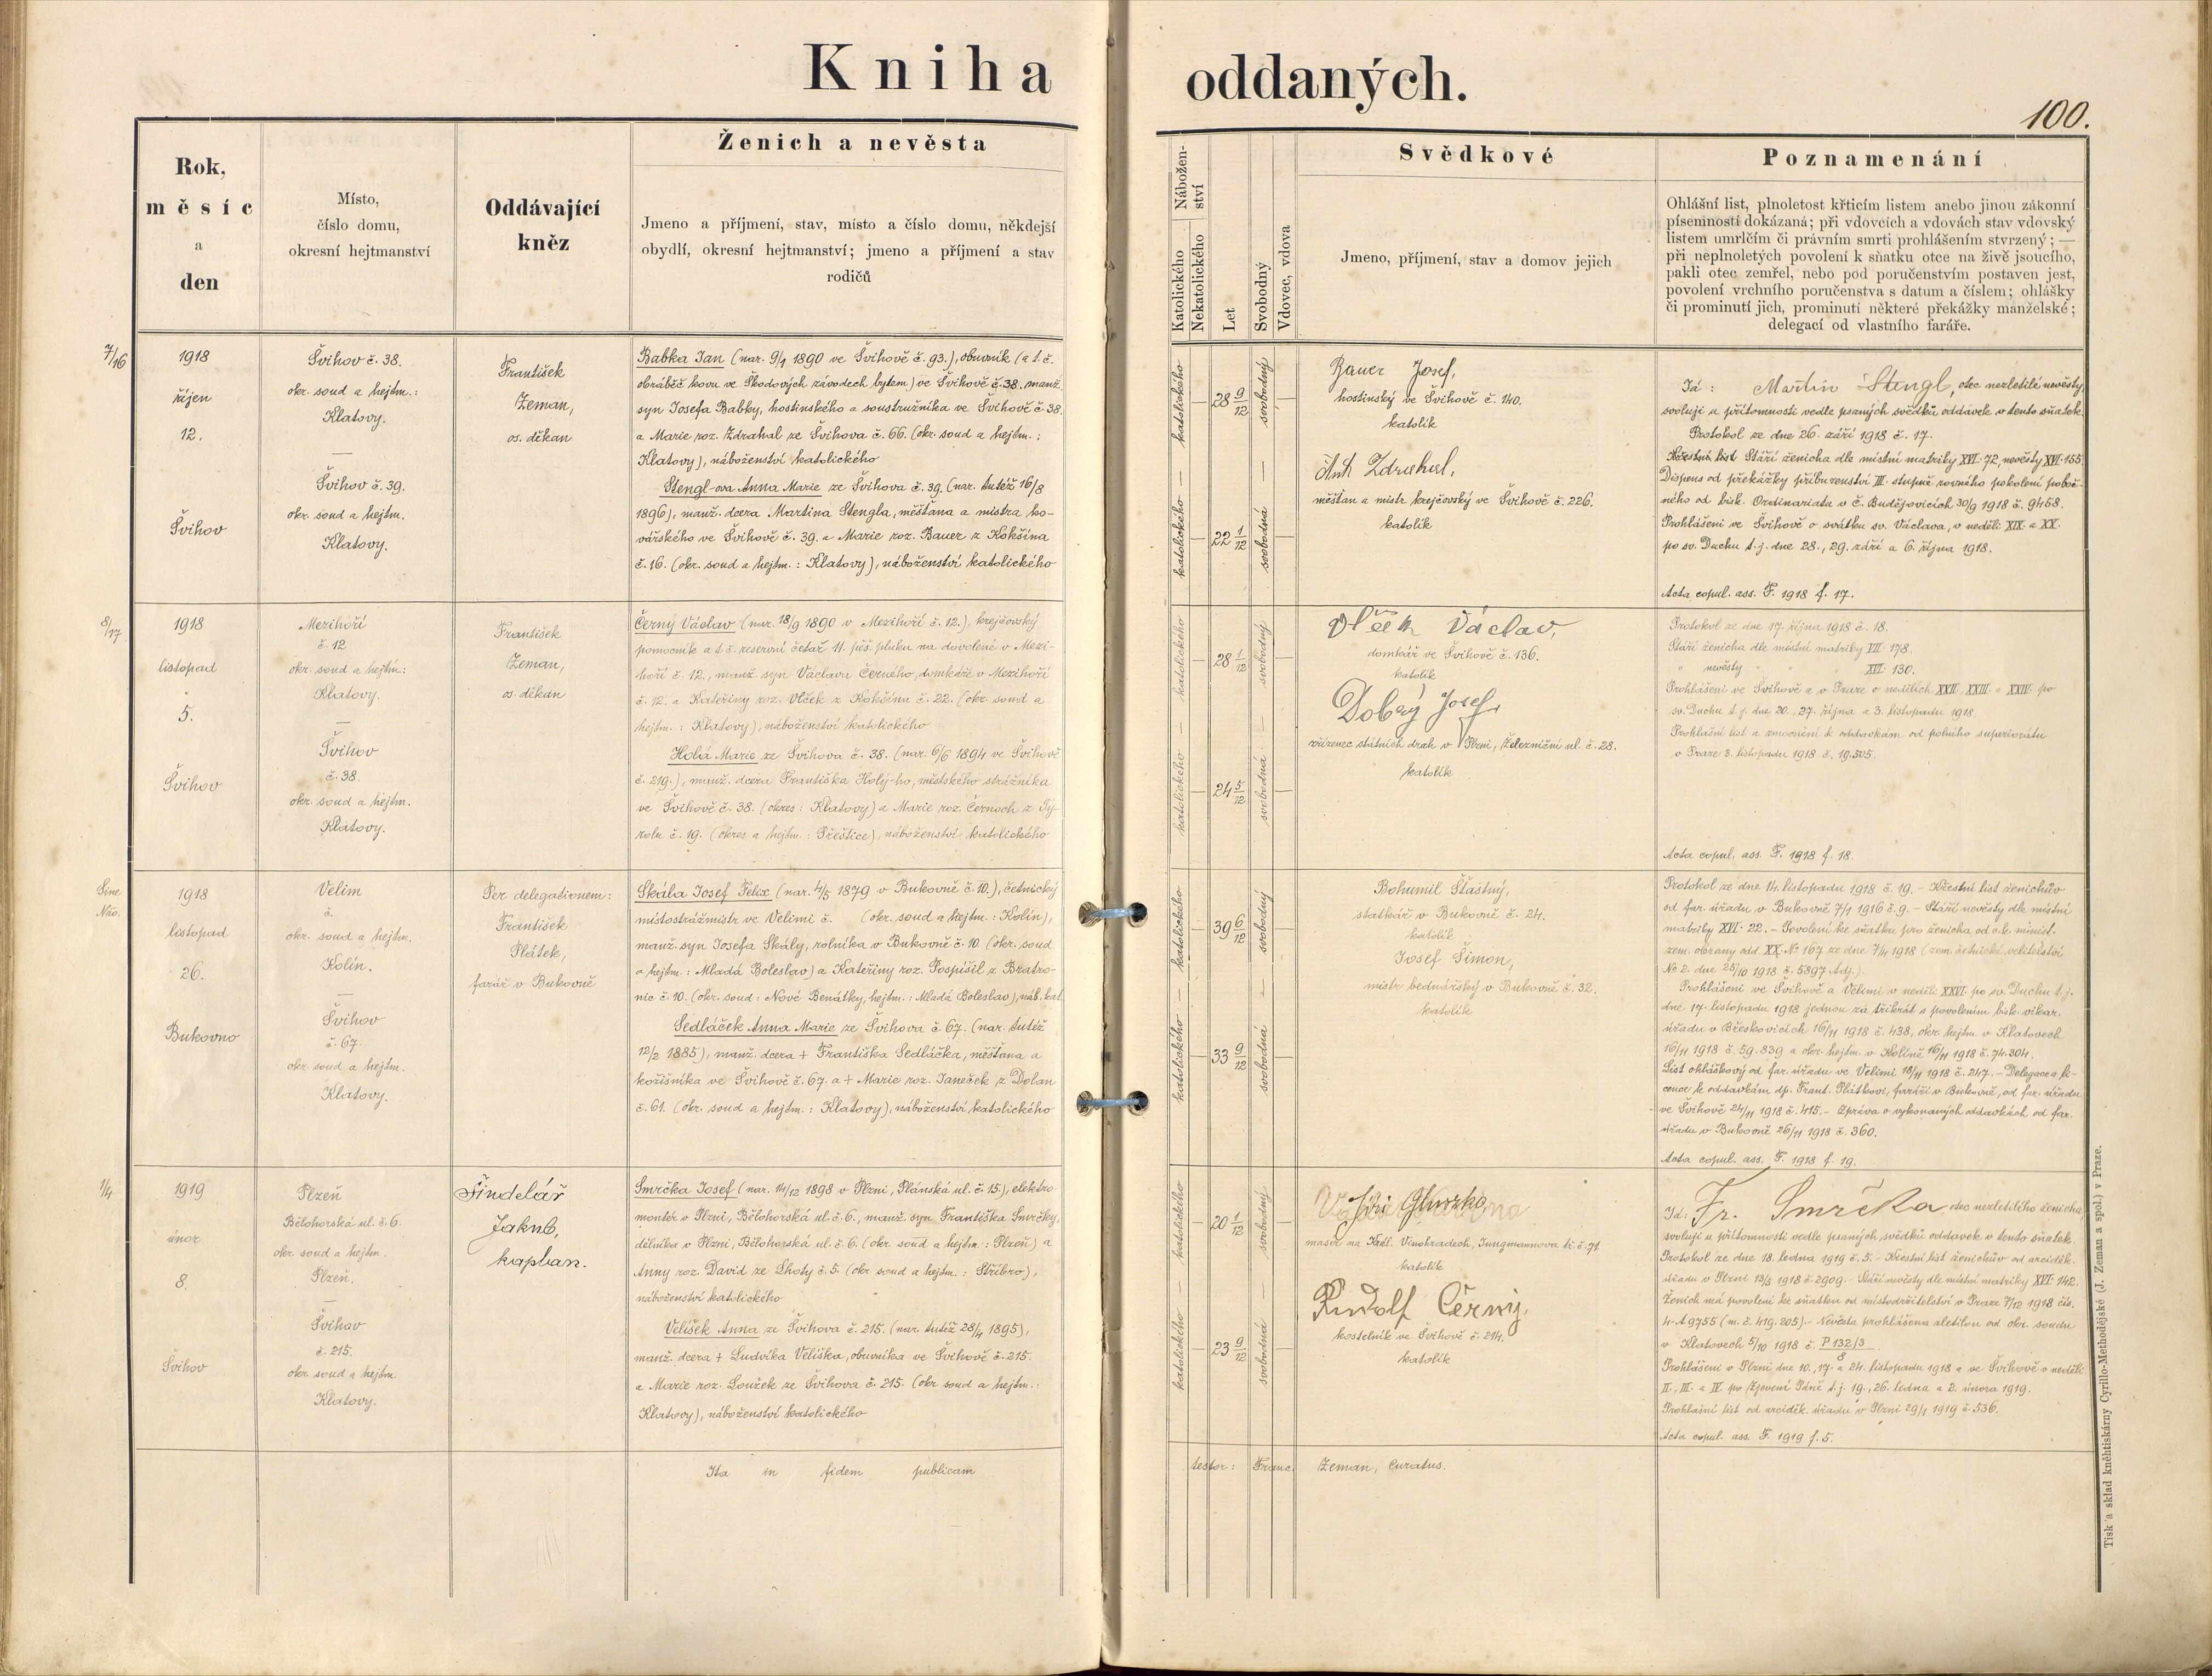 Kniha oddaných.
100.
Rok,
měsíc
a
den
Místo,
číslo domu,
okresní hejtmanství
Oddávající
kněz
Ženich a nevěsta
Jmeno a příjmení, stav, místo a číslo domu, někdejší
obydlí, okresní hejtmanství; jmeno a příjmení a stav
rodičů
Nábožen-
ství
Katolického
Nekatolického
Let
Svobodný
Vdovec, vdova
Svědkové
Jmeno, příjmení, stav a domov jejich
Poznamenání
Ohlášní list, plnoletost křticím listem anebo jinou zákonní
písemností dokázaná; při vdovcích a vdovách stav vdovský
listem umrlčím či právním smrti prohlášením stvrzený; —
při neplnoletých povolení k sňatku otce na živě jsoucího,
pakli otec zemřel, nebo pod poručenstvím postaven jest,
povolení vrchního poručenstva s datum a číslem; ohlášky
či prominutí jich, prominutí některé překážky manželské;
delegací od vlastního faráře.
7/16
1918
říjen
12.
Švihov
Švihov č. 38.
okr. soud a hejtm.:
Klatovy.
—
Švihov č. 39.
okr. soud a hejtm.
Klatovy.
František
Zeman,
os. děkan
Babka Jan (nar. 9/4 1890 ve Švihově č. 93.), obuvník (a t. č.
obráběč kovu ve Škodových závodech bytem) ve Švihově č. 38. manž.
syn Josefa Babky, hostinského a soustružníka ve Švihově č. 38.
a Marie roz. Zdrahal ze Švihova č. 66. (okr. soud a hejtm.:
Klatovy), náboženství katolického
Stengl-ova Anna Marie ze Švihova č. 39. (nar. tutéž 16/8
1896), manž. dcera Martina Stengla, měšťana a mistra ko-
vářského ve Švihově č. 39. a Marie roz. Bauer z Kokšína
č. 16. (okr. soud a hejtm.: Klatovy), náboženství katolického
katolického — katolického
28 9/12
22 1/12
svobodný — svobodná
Bauer Josef,
hostinský ve Švihově č. 140.
katolík
Ant Zdrahal,
měšťan a mistr krejčovský ve Švihově č. 226.
katolík
Já: Martin Stengl, otec nezletilé nevěsty,
svoluji u přítomnosti vedle psaných svědků oddavek v tento sňatek.
Protokol ze dne 26. září 1918 č. 17.
Křestní list Stáří ženicha dle místní matriky XVI. 72, nevěsty XVI. 155.
Dispens od překážky příbuzenství III. stupně rovného pokolení poboč-
ného od bisk. Ordinariatu v Č. Budějovicích 30/9 1918 č. 9458.
Prohlášeni ve Švihově o svátku sv. Václava, v neděli XIX. a XX.
po sv. Duchu t. j. dne 28., 29. září a 6. října 1918.
Acta copul. ass. F. 1918 f. 17.
8/17
1918
listopad
5.
Švihov
Mezihoří
č. 12
okr. soud a hejtm.:
Klatovy.
—
Švihov
č. 38.
okr. soud a hejtm.
Klatovy.
František
Zeman,
os. děkan
Černý Václav (nar. 18/9 1890 v Mezihoří č. 12.), krejčovský
pomocník a t. č. reservní četař 11. pěš. pluku na dovolené v Mezi-
hoří č. 12., manž. syn Václava Černého, domkáře v Mezihoří
č. 12. a Kateřiny roz. Vlček z Kokšína č. 22. (okr. soud a
hejtm.: Klatovy), náboženství katolického
Holá Marie ze Švihova č. 38. (nar. 6/6 1894 ve Švihově
č. 219.), manž. dcera Františka Holý-ho, městského strážníka
ve Švihově č. 38. (okres: Klatovy) a Marie roz. Černoch z Ty-
rolu č. 19. (okres a hejtm.: Přeštice), náboženství katolického
katolického — katolického
28 1/12
24 5/12
svobodný — svobodná
Vlček Václav,
domkář ve Švihově č. 136.
katolík
Dobrý Josef,
zřízenec státních drah v Plzni, Železniční ul. č. 28.
katolík
Protokol ze dne 17. října 1918 č. 18.
Stáří ženicha dle místní matriky VII. 178.
" nevěsty " " XVI. 130.
Prohlášeni ve Švihově a v Praze o nedělích XXII., XXIII. a XXIV. po
sv. Duchu t. j. dne 20., 27. října a 3. listopadu 1918.
Prohlašní list a zmocnění k oddavkám od polního superiorátu
v Praze 3. listopadu 1918 č. 19.505.
Acta copul. ass. F. 1918 f. 18.
Sine
Nro.
1918
listopad
26.
Bukovno
Velim
č.
okr. soud a hejtm.
Kolín.
—
Švihov
č. 67.
okr. soud a hejtm.
Klatovy.
Per delegationem:
František
Plátek,
farář v Bukovně
Skála Josef Felix (nar. 4/5 1879 v Bukovně č. 10.), četnický
místostrážmistr ve Velimi č. (okr. soud a hejtm.: Kolín),
manž. syn Josefa Skály, rolníka v Bukovně č. 10. (okr. soud
a hejtm.: Mladá Boleslav) a Kateřiny roz. Pospíšil z Bratro-
nic č. 10. (okr. soud: Nové Benátky, hejtm.: Mladá Boleslav), náb. kat.
Sedláček Anna Marie ze Švihova č. 67. (nar. tutéž
12/2 1885), manž. dcera + Františka Sedláčka, měšťana a
kožišníka ve Švihově č. 67. a + Marie roz. Janeček z Dolan
č. 61. (okr. soud a hejtm.: Klatovy), náboženství katolického
katolického — katolického
39 6/12
33 9/12
svobodný — svobodná
Bohumil Šťastný,
statkář v Bukovně č. 24.
katolík
Josef Šimon,
mistr bednářský v Bukovně č. 32.
katolík
Protokol ze dne 14. listopadu 1918 č. 19. – Křestní list ženichův
od far. úřadu v Bukovně 7/1 1916 č. 9. – Stáří nevěsty dle místní
matriky XVI. 22. – Povolení ke sňatku pro ženicha od c. k. minist.
zem. obrany odd. XX. No 167 ze dne 7/4 1918 (zem. četnické velitelství
No 2. dne 25/10 1918 č. 5897 Adj.).
Prohlášeni ve Švihově a Velimi v neděli XXVI. po sv. Duchu t. j.
dne 17. listopadu 1918 jednou za třikrát s povolením bisk. vikar.
úřadu v Běeskovicích 16/11 1918 č. 438, okr. hejtm. v Klatovech
16/11 1918 č. 59.839 a okr. hejtm. v Kolíně 16/11 1918 č. 74.304.
List ohláškový od far. úřadu ve Velimi 18/11 1918 č. 247. – Delegace a li-
cence k oddavkám dp. Frant. Plátkovi, faráři v Bukovně, od far. úřadu
ve Švihově 24/11 1918 č. 415. – Zpráva o vykonaných oddavkách od far.
úřadu v Bukovně 26/11 1918 č. 360.
Acta copul. ass. F. 1918 f. 19.
1/4
1919
únor
8.
Švihov
Plzeň
Bělohorská ul. č. 6.
okr. soud a hejtm.
Plzeň.
—
Švihov
č. 215.
okr. soud a hejtm.
Klatovy.
Šindelář
Jakub,
kaplan.
Smrčka Josef (nar. 14/12 1898 v Plzni, Plánská ul. č. 15.), elektro-
montér v Plzni, Bělohorská ul. č. 6., manž. syn Františka Smrčky,
dělníka v Plzni, Bělohorská ul. č. 6. (okr. soud a hejtm.: Plzeň) a
Anny roz. David ze Lhoty č. 5. (okr. soud a hejtm.: Stříbro),
náboženství katolického
Velíšek Anna ze Švihova č. 215. (nar. tutéž 28/4 1895),
manž. dcera + Ludvíka Velíška, obuvníka ve Švihově č. 215.
a Marie roz. Loužek ze Švihova č. 215. (okr. soud a hejtm.:
Klatovy), náboženství katolického
katolického — katolického
20 1/12
23 9/12
svobodný — svobodná
masér na Král. Vinohradech, Jungmannova tř. č. 71
katolík
Rudolf Černý,
kostelník ve Švihově č. 214.
katolík
Já: Fr. Smrčka, otec nezletilého ženicha,
svoluji u přítomnosti vedle psaných svědků oddavek v tento sňatek.
Protokol ze dne 18. ledna 1919 č. 5. – Křestní list ženichův od arciděk.
úřadu v Plzni 13/5 1918 č. 2909. – Stáří nevěsty dle místní matriky XVI. 142.
Ženich má povolení ke sňatku od místodržitelství v Praze 7/12 1918 čís.
4-A 9755 (m. č. 419.205). – Nevěsta prohlášena zletilou od okr. soudu
v Klatovech 5/10 1918 č. P 132/3
8
Prohlášeni v Plzni dne 10., 17. a 24. listopadu 1918 a ve Švihově v neděli
II., III. a IV. po Zjevení Páně t. j. 19., 26. ledna a 2. února 1919.
Prohlašní list od arciděk. úřadu v Plzni 29/1 1919 č. 536.
Acta copul. ass. F. 1919 f. 5.
Ita in fidem publicam testor: Franc. Zeman, curatus.
Tisk a sklad kněhtiskárny Cyrillo-Methodějské (J. Zeman a spol.) v Praze.